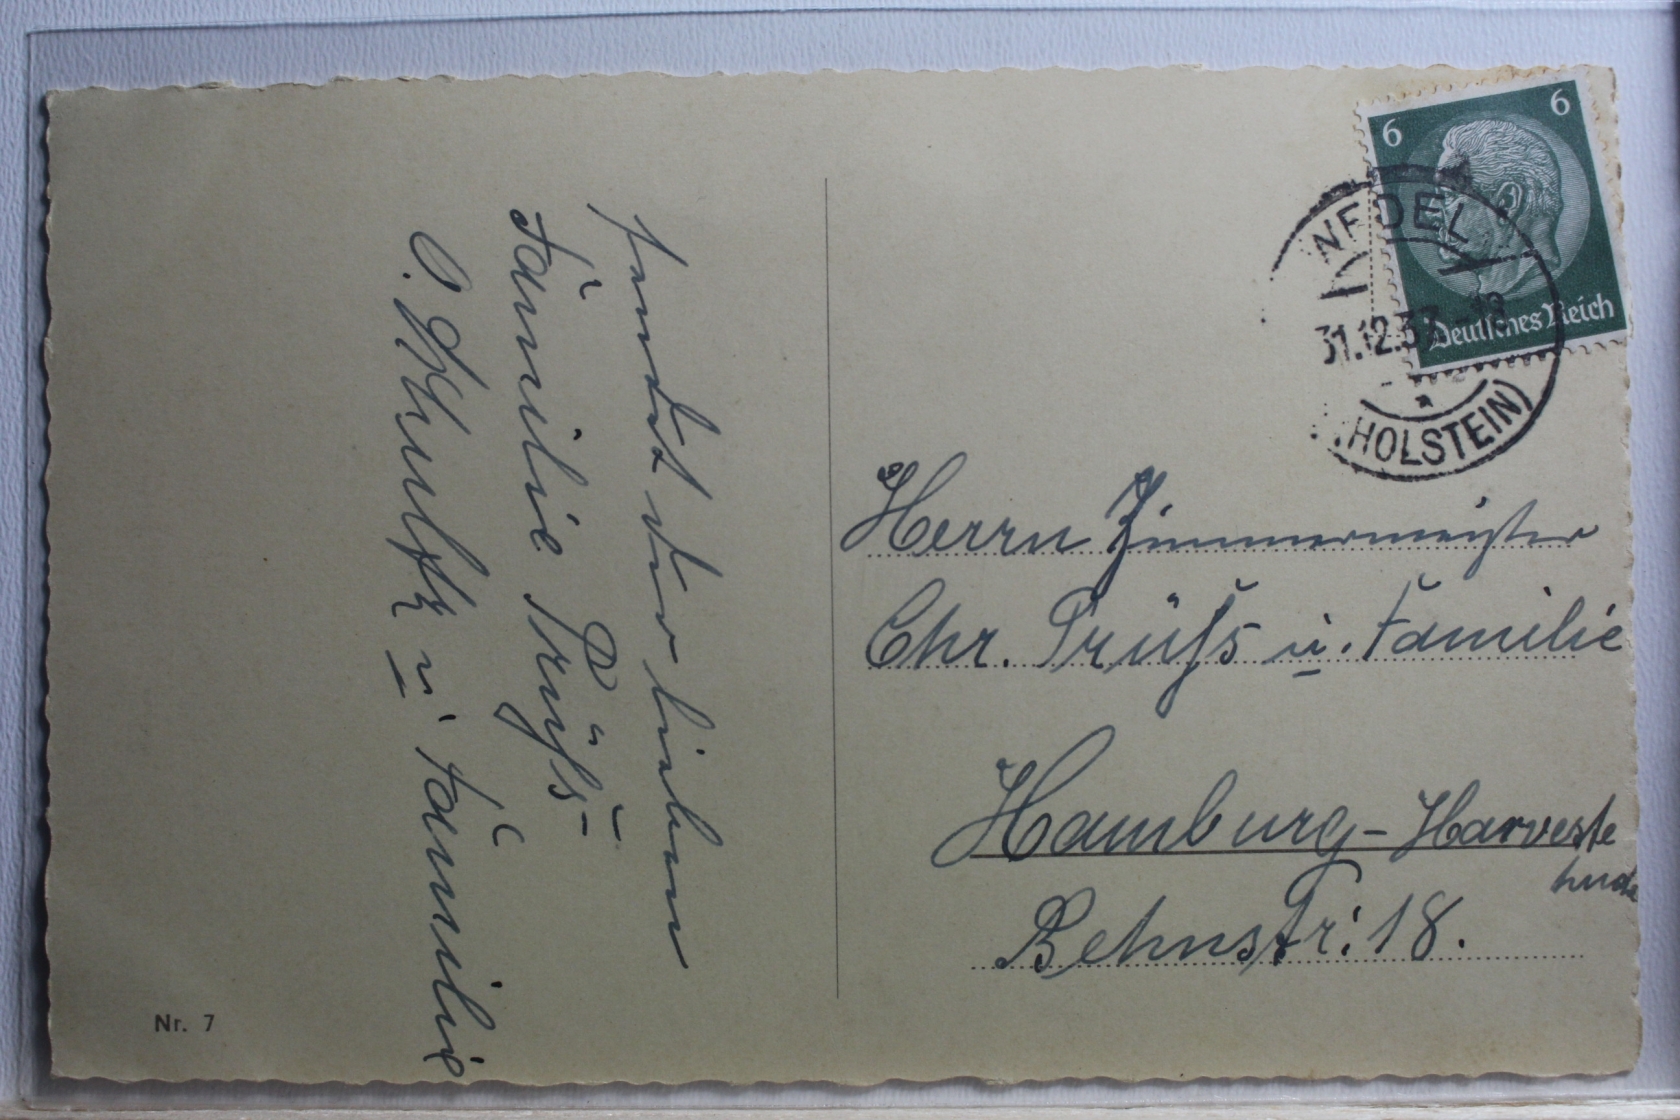 sendet der lieben
Familie Prüſs
O. Schultz u. Familie
6 6
Deutsches Reich
WEDEL
31.12.37-18
a
(HOLSTEIN)
Herrn Zimmermeister
Chr. Prüſs u. Familie
Hamburg-Harveste
hude
Behnstr: 18.
Nr. 7